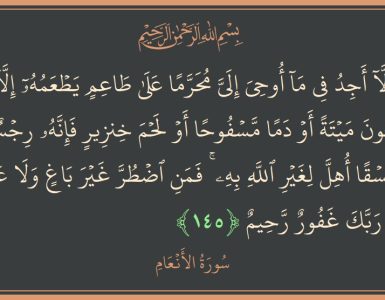 بِسْمِ اللَّهِ الرَّحْمَٰنِ الرَّحِيمِ
أَجِدُ فِى مَآ أُوحِىَ إِلَىَّ مُحَرَّمًا عَلَىٰ طَاعِمٍ يَطْعَمُهُۥٓ إِلَّآ
مَيْتَةً أَوْ دَمًا مَّسْفُوحًا أَوْ لَحْمَ خِنزِيرٍ فَإِنَّهُۥ
أُهِلَّ لِغَيْرِ ٱللَّهِ بِهِۦ ۚ فَمَنِ ٱضْطُرَّ غَيْرَ بَاغٍ وَلَا
رَبَّكَ غَفُورٌ رَّحِيمٌ ﴿١٤٥﴾
سُورَةُ الأَنْعَامِ